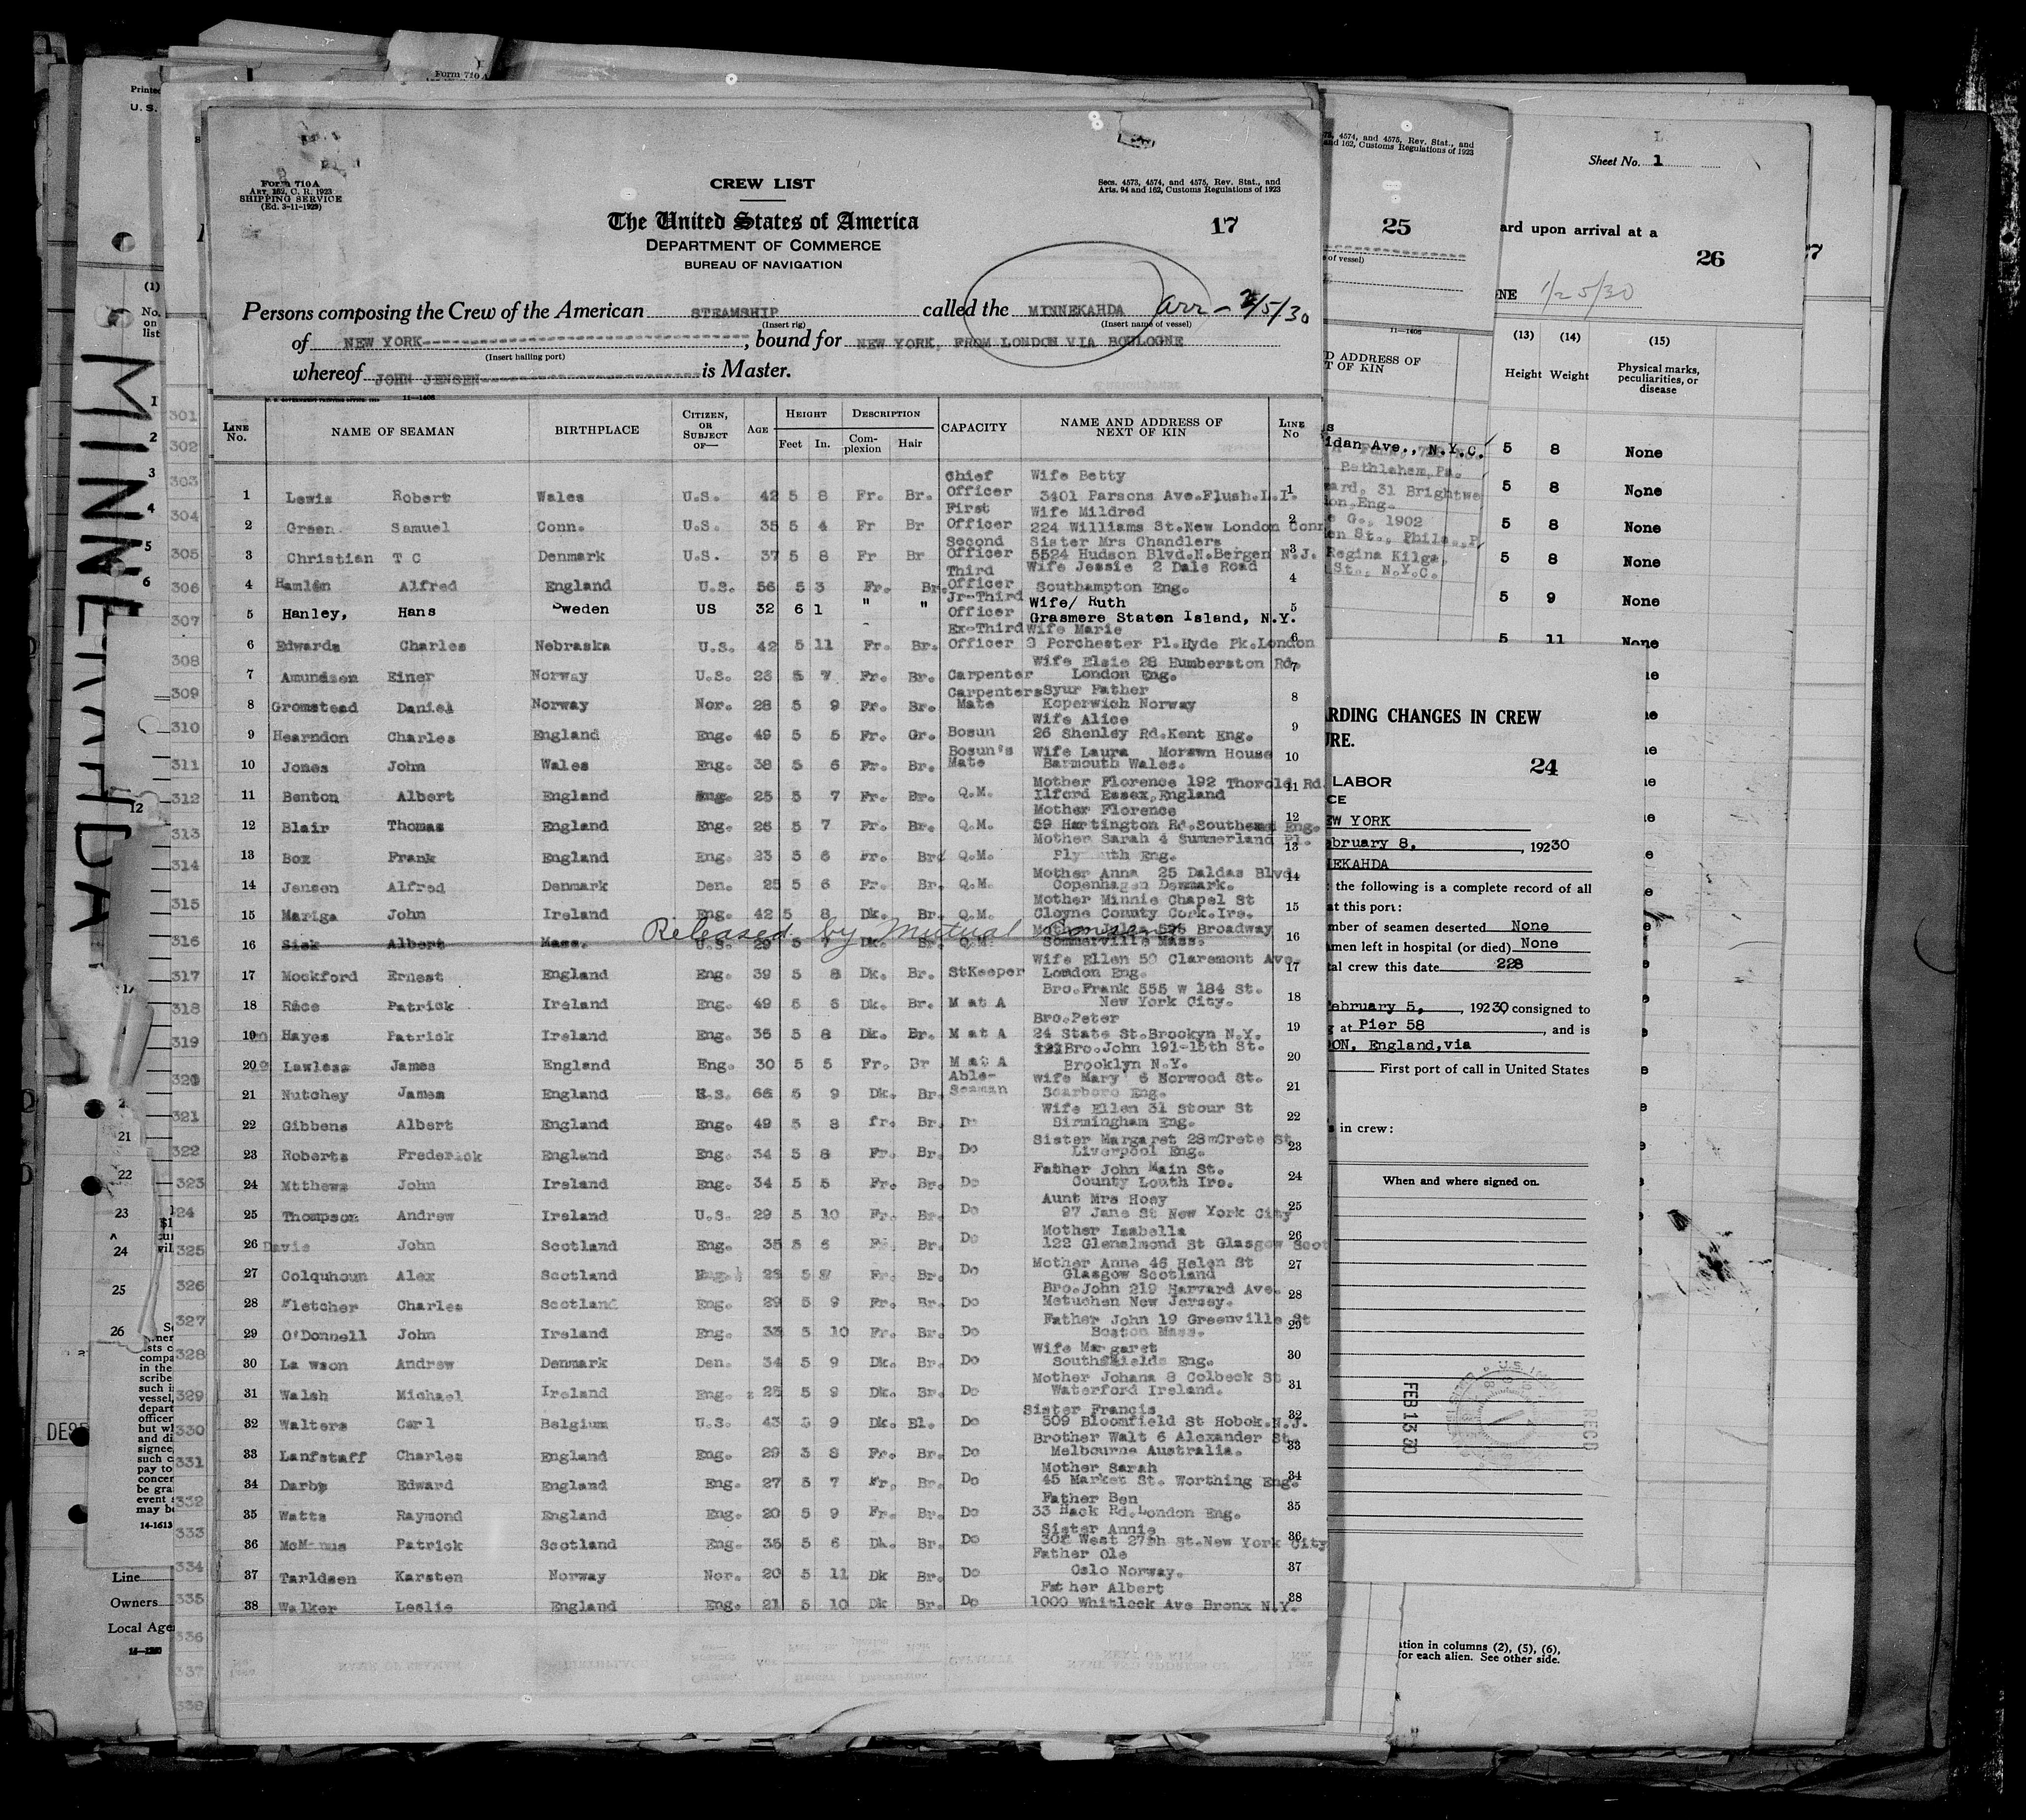 Form 710 A
Printed
U. S.
Form 710 A
Art. 162, C. R. 1923
SHIPPING SERVICE
(Ed. 3-11-1929)
CREW LIST
Secs. 4573, 4574, and 4575, Rev. Stat., and
Arts. 94 and 162, Customs Regulations of 1923
The United States of America
17
DEPARTMENT OF COMMERCE
BUREAU OF NAVIGATION
Persons composing the Crew of the American STEAMSHIP called the MINNEKAHDA Arr - 2/5/30
(Insert rig) (Insert name of vessel)
of NEW YORK, bound for NEW YORK, FROM LONDON VIA BOULOGNE
(Insert hailing port)
whereof JOHN JENSEN is Master.
11-1406
LINE No. NAME OF SEAMAN BIRTHPLACE CITIZEN, OR SUBJECT OF— AGE HEIGHT Feet In. DESCRIPTION Complexion Hair CAPACITY NAME AND ADDRESS OF NEXT OF KIN LINE No
Chief Wife Betty
1 Lewis Robert Wales U.S. 42 5 8 Fr. Br. Officer 3401 Parsons Ave.Flush.L.I. 1
First Wife Mildred
2 Green Samuel Conn. U.S. 35 5 4 Fr Br Officer 224 Williams St.New London Conn 2
Second Sister Mrs Chandlers
3 Christian T C Denmark U.S. 37 5 8 Fr Br Officer 5524 Hudson Blvd.N.Bergen N.J. 3
Third Wife Jessie 2 Dale Road
4 Hamlen Alfred England U.S. 56 5 3 Fr. Br. Officer Southampton Eng. 4
Jr-Third Wife/ Ruth
5 Hanley, Hans Sweden US 32 6 1 " " Officer Grasmere Staten Island, N.Y. 5
Ex-Third Wife Marie
6 Edwards Charles Nebraska U.S. 42 5 11 Fr. Br. Officer 3 Porchester Pl.Hyde Pk.London 6
Wife Elsie 28 Humberston Rd.
7 Amundsen Einer Norway U.S. 26 5 7 Fr. Br. Carpenter London Eng. 7
Carpenters Syur Father
8 Gromstead Daniel Norway Nor. 28 5 9 Fr. Br. Mate Koperwich Norway 8
Wife Alice
9 Hearndon Charles England Eng. 49 5 5 Fr. Gr. Bosun 26 Shenley Rd.Kent Eng. 9
Bosun's Wife Laura Morawn House
10 Jones John Wales Eng. 38 5 6 Fr. Br. Mate Barmouth Wales. 10
Mother Florence 192 Thorold Rd.
11 Benton Albert England Eng. 25 5 7 Fr. Br. Q.M. Ilford Essex,England 11
Mother Florence
12 Blair Thomas England Eng. 26 5 7 Fr. Br. Q.M. 59 Hartington Rd.Southend Eng. 12
Mother Sarah 4 Summerland Pl.
13 Box Frank England Eng. 23 5 6 Fr. Br Q.M. Plymouth Eng. 13
Mother Anna 25 Daldas Blvd.
14 Jensen Alfred Denmark Den. 25 5 6 Fr. Br. Q.M. Copenhagen Denmark. 14
Mother Minnie Chapel St
15 Mariga John Ireland Eng. 42 5 8 Dk. Br. Q.M. Cloyne County Cork.Ire. 15
Released by Mutual Consent
Mother Julia 595 Broadway
16 Sisk Albert Mass. U.S. 29 5 7 Dk. Br. Q.M. Sommerville Mass. 16
Wife Ellen 50 Claremont Ave.
17 Mockford Ernest England Eng. 39 5 8 Dk. Br. StKeeper London Eng. 17
Bro.Frank 555 w 184 St.
18 Rice Patrick Ireland Eng. 49 5 6 Dk. Br. M at A New York City. 18
Bro.Peter
19 Hayes Patrick Ireland Eng. 36 5 8 Dk. Br. M at A 24 State St.Brookyn N.Y. 19
Bro.John 191-15th St.
20 Lawless James England Eng. 30 5 5 Fr. Br M at A Brooklyn N.Y. 20
Able- Wife Mary 6 Norwood St.
21 Nutchey James England U.S. 66 5 9 Dk. Br. Seaman Scarboro Eng. 21
Wife Ellen 31 Stour St
22 Gibbens Albert England Eng. 49 5 8 fr. Br. Do Birmingham Eng. 22
Sister Margaret 28 Crete St
23 Roberts Frederick England Eng. 34 5 8 Fr. Br. Do Liverpool Eng. 23
Father John Main St.
24 Mtthews John Ireland Eng. 34 5 5 Fr. Br. Do County Louth Ire. 24
Aunt Mrs Hoey
25 Thompson Andrew Ireland U.S. 29 5 10 Fr. Br. Do 97 Jane St New York City 25
Mother Isabella
26 Davis John Scotland Eng. 35 5 6 Fr. Br. Do 122 Glenalmond St Glasgow Scot 26
Mother Anne 46 Helen St
27 Colquhoun Alex Scotland Eng. 23 5 Fr. Br. Do Glasgow Scotland 27
Bro.John 219 Harvard Ave.
28 Fletcher Charles Scotland Eng. 29 5 9 Fr. Br. Do Metuchen New Jersey. 28
Father John 19 Greenville St
29 O'Donnell John Ireland Eng. 33 5 10 Fr. Br. Do Boston Mass. 29
Wife Margaret
30 La wson Andrew Denmark Den. 34 5 9 Dk. Br. Do Southshields Eng. 30
Mother Johana 8 Colbeck St
31 Walsh Michael Ireland Eng. 25 5 9 Dk. Br. Do Waterford Ireland. 31
Sister Francis
32 Walters Carl Belgium U.S. 43 5 9 Dk. Bl. Do 509 Bloomfield St Hobok.N.J. 32
Brother Walt 6 Alexander St.
33 Lanfstaff Charles England Eng. 29 5 8 Fr. Br. Do Melbourne Australia. 33
Mother Sarah
34 Darby Edward England Eng. 27 5 7 Fr. Br. Do 45 Market St. Worthing Eng. 34
Father Ben
35 Watts Raymond England Eng. 20 5 9 Fr. Br. Do 33 Hack Rd.London Eng. 35
Sister Annie
36 McManus Patrick Scotland Eng. 35 5 6 Dk. Br. Do West 27th St.New York City 36
Father Ole
37 Tarldsen Karsten Norway Nor. 20 5 11 Dk Br. Do Oslo Norway. 37
Father Albert
38 Walker Leslie England Eng. 21 5 10 Dk Br. Do 1000 Whitlock Ave Bronx N.Y. 38
MINNEKAHDA
Line
Owners
Local Age
4574, and 4575, Rev. Stat., and
and 162, Customs Regulations of 1923
25
of vessel)
11-1406
D ADDRESS OF
T OF KIN
idan Ave., N.Y.C.
Bethlehem Pa.
ard, 31 Brightwe
on,Eng.
e G., 1902
en St., Phila.,P
Regina Kilga,
St., N.Y.C.
Sheet No. 1
ard upon arrival at a
26
NE 1/25/30
(13) (14) (15)
Height Weight Physical marks, peculiarities, or disease
5 8 None
5 8 None
5 8 None
5 8 None
5 9 None
5 11 None
RDING CHANGES IN CREW
URE.
24
LABOR
CE
EW YORK
ebruary 8, , 1930
NEKAHDA
the following is a complete record of all
at this port:
mber of seamen deserted None
amen left in hospital (or died) None
tal crew this date 228
ebruary 5, , 1930 consigned to
g at Pier 58 , and is
ON, England,via
First port of call in United States
in crew:
When and where signed on.
FEB 13 30
RECD
ation in columns (2), (5), (6),
for each alien. See other side.